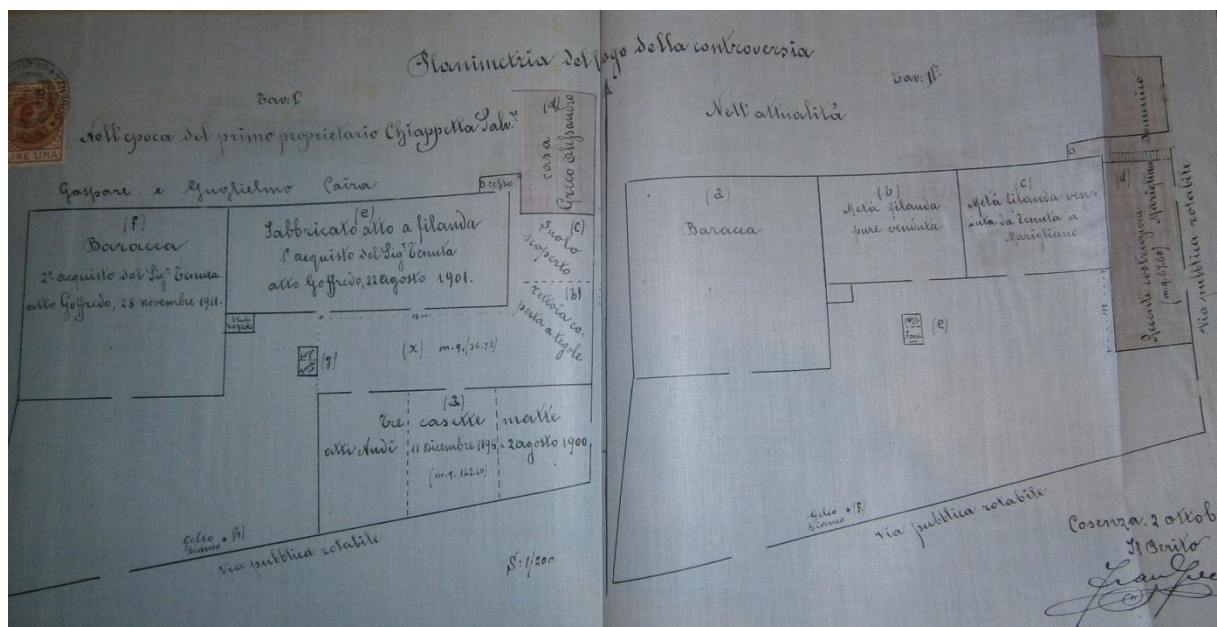 Planimetria del luogo della controversia
Tav: Iª
Nell'epoca del primo proprietario Chiappetta Salv.re
Gaspare e Guglielmo Caira
(f)
Baracca
2º acquisto del Sig.r Tenuta
atto Goffredo, 28 novembre 1911.
(e)
Fabbricato atto a filanda
1º acquisto del Sig.r Tenuta
atto Goffredo, 22 agosto 1901.
cesso
(d)
casa
Greco Alessandro
(c)
Suolo
scoperto
(b)
Tettoia co-
perta a tegole
(g)
(x) m.q.
(a)
Tre casette matte
atti Nudi 11 Dicembre 1896 - 2 agosto 1900
Gelso
bianco (h)
Via pubblica rotabile
S: 1/200
Tav: IIª
Nell'attualità
(a)
Baracca
(b)
Metà filanda
pure venduta
(c)
Metà filanda ven-
duta da Tenuta a
Marigliano
(d)
Recente costruzione
Marigliano Domenico
(m.q. 67,60)
Via pubblica rotabile
(e)
Gelso
bianco (f)
Via pubblica rotabile
Cosenza, 2 ottob
Il Perito
LIRE UNA